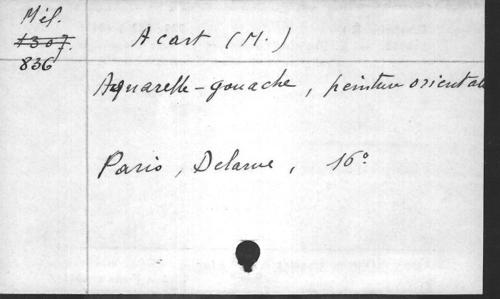 Mél.
1307.
836
Acart (M.)
Aquarelle-gouache, peinture orientale
Paris, Delarue, 16°